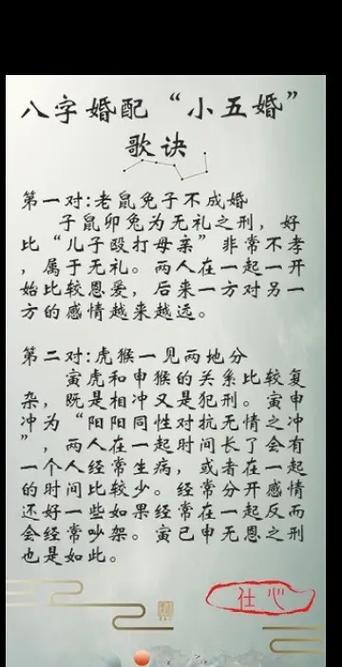 八字婚配“小五婚”
歌诀
第一对:老鼠兔子不成婚
子鼠卯兔为无礼之刑，好
比“儿子殴打母亲”非常不孝
，属于无礼。两人在一起一开
始比较恩爱，后来一方对另一
方的感情越来越远。
第二对:虎猴一见两地分
寅虎和申猴的关系比较复
杂，既是相冲又是犯刑。寅申
冲为“阳阳同性对抗无情之冲
”，两人在一起时间长了会有
一个人经常生病，或者在一起
的时间比较少。经常分开感情
还好一些如果经常在一起反而
会经常吵架。寅巳申无恩之刑
也是如此。
仕心